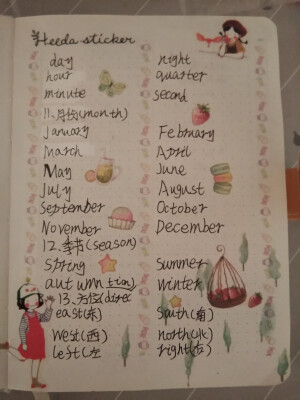 Heeda sticker
day night
hour quarter
minute second
11.月份(month)
January February
March April
May June
July August
September October
November December
12.季节(season)
Spring summer
autumn winter
13.方位(direc
tion)
east(东) south(南)
west(西) north(北)
left(左 right(右)